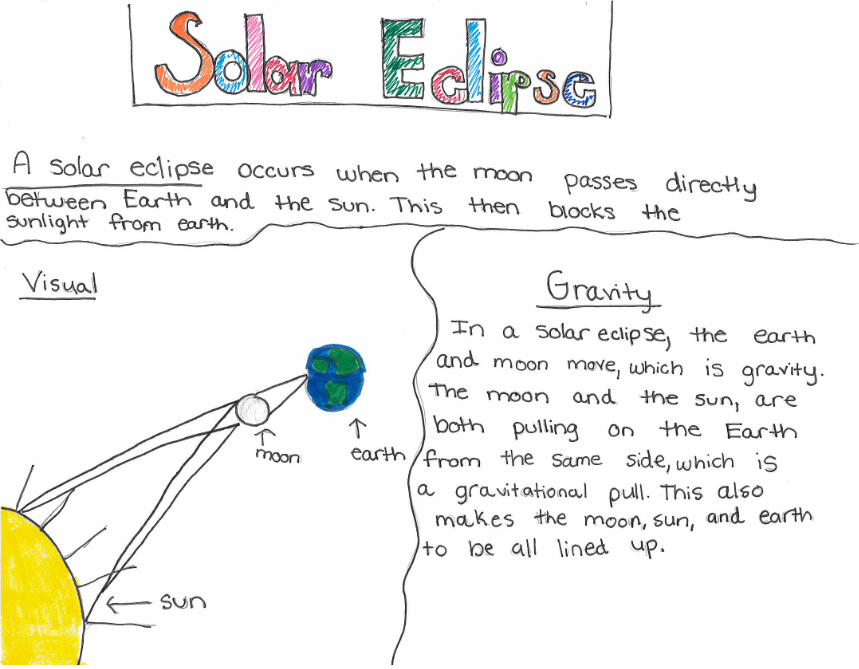 Solar Eclipse
A solar eclipse occurs when the moon passes directly
between Earth and the sun. This then blocks the
sunlight from earth.
Visual
moon
earth
sun
Gravity
In a solar eclipse, the earth
and moon move, which is gravity.
The moon and the sun, are
both pulling on the Earth
from the same side, which is
a gravitational pull. This also
makes the moon, sun, and earth
to be all lined up.